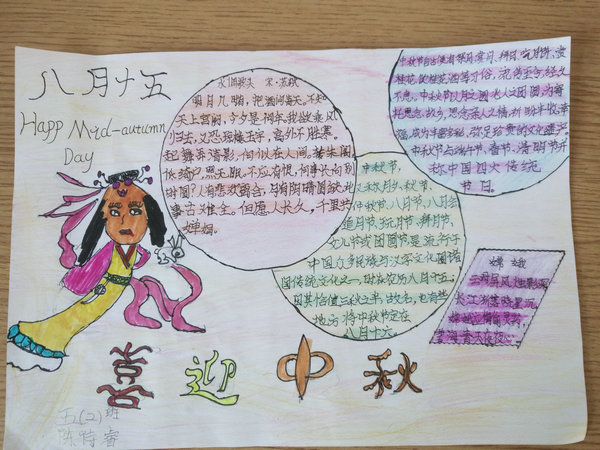 八月十五
Happy Mid-autumn
Day
水调歌头 宋·苏轼
明月几时,把酒问青天。不知
天上宫阙,今夕是何年。我欲乘风
归去,又恐琼楼玉宇,高处不胜寒。
起舞弄清影,何似在人间。转朱阁
低绮户,照无眠。不应有恨,何事长向别
时圆?人有悲欢离合,月有阴晴圆缺,此
事古难全。但愿人长久,千里共
婵娟。
中秋节自古便有祭月、赏月、拜月、吃月饼、赏
桂花、饮桂花酒等习俗,流传至今,经久
不息。中秋节以月之圆兆人之团圆,为寄
托思念故乡,思念亲人之情,祈盼丰收、幸
福,成为丰富多彩、弥足珍贵的文化遗产。
中秋节与端午节、春节、清明节并
称中国四大传统
节日。
中秋节,
又称月夕、秋节、
仲秋节、八月节、八月会
追月节、玩月节、拜月节、
女儿节或团圆节,是流行于
中国众多民族与汉字文化圈诸
国传统文化之一,时在农历八月十五;
因其恰值三秋之半,故名,也有些
地方将中秋节定在
八月十六
嫦娥
云母屏风烛影深
长江渐落晓星沉。
嫦娥应悔偷灵药,
碧海青天夜夜心
喜迎中秋
五(2)班
陈诗睿